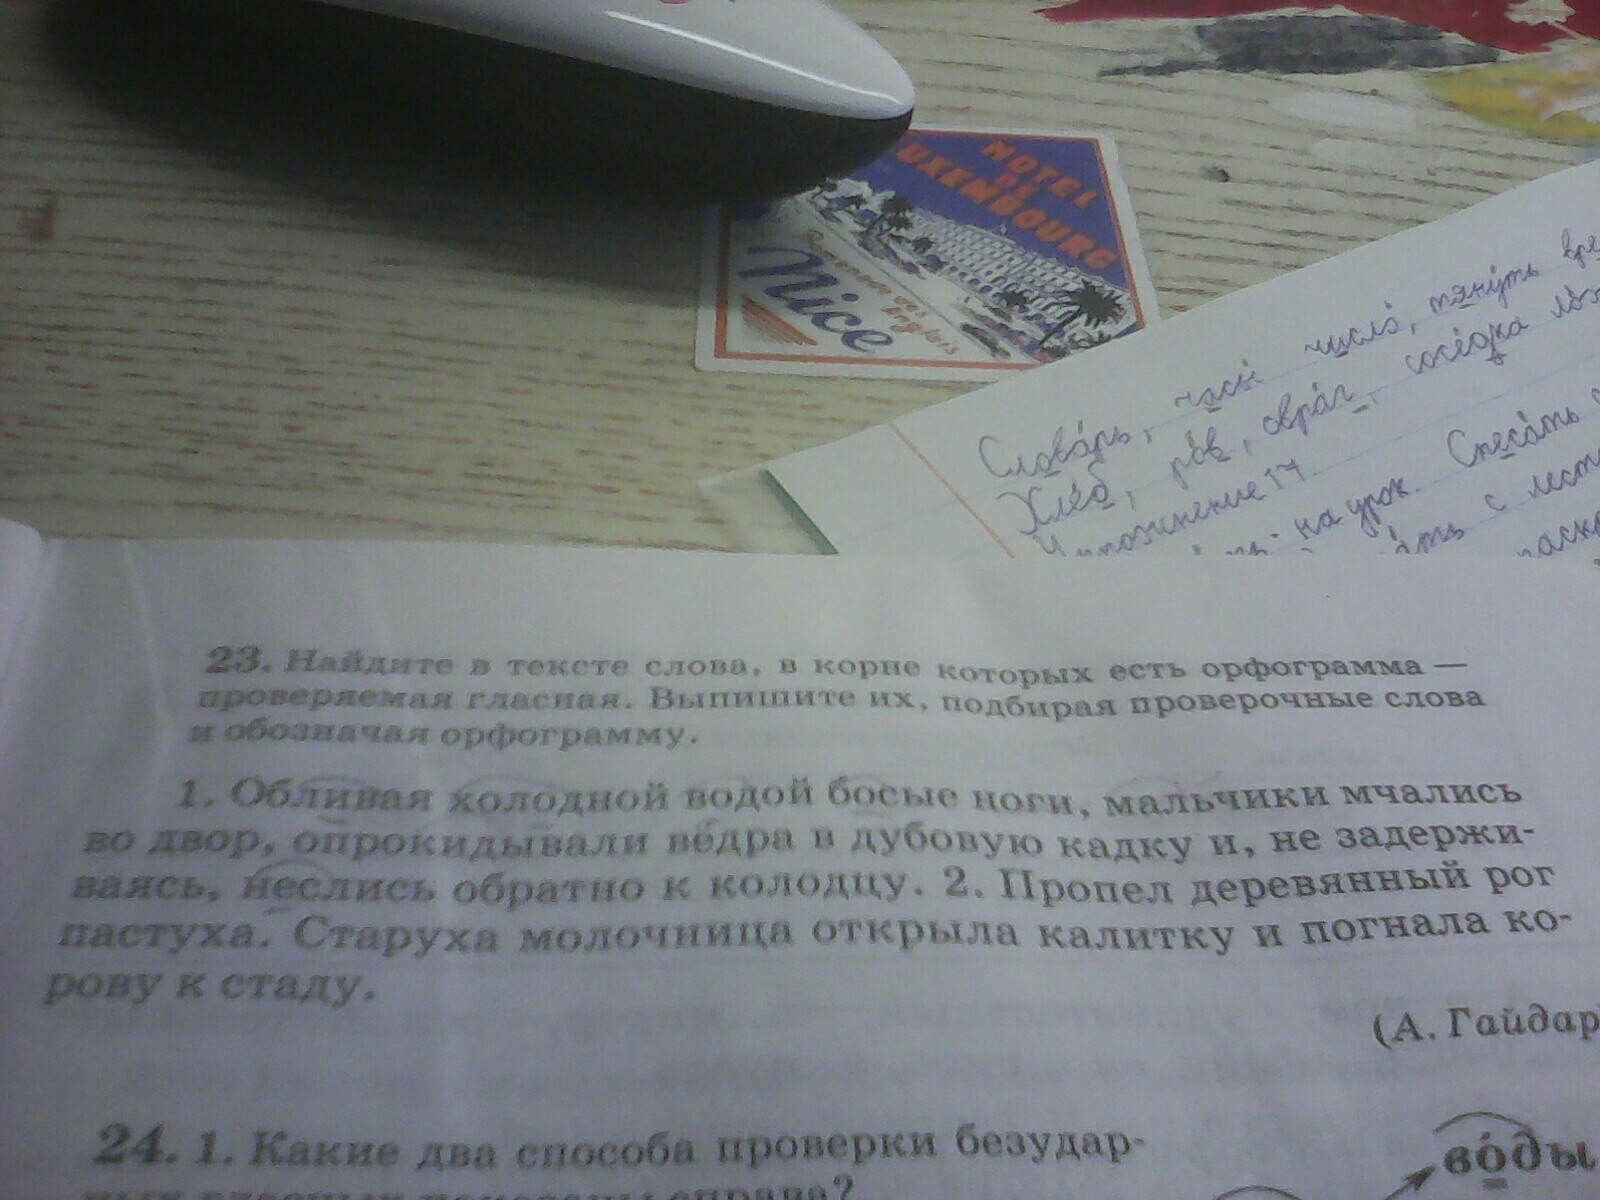 HOTEL
DE
LUXEMBOURG
Promenade des
Anglais
Nice
Словарь, часы число, тянуть
Хлеб, ров, овраг, соседка
Упражнение 17.
на урок. Списать
с
23. Найдите в тексте слова, в корне которых есть орфограмма —
проверяемая гласная. Выпишите их, подбирая проверочные слова
и обозначая орфограмму.
1. Обливая холодной водой босые ноги, мальчики мчались
во двор, опрокидывали вёдра в дубовую кадку и, не задержи-
ваясь, неслись обратно к колодцу. 2. Пропел деревянный рог
пастуха. Старуха молочница открыла калитку и погнала ко-
рову к стаду.
(А. Гайдар)
24. 1. Какие два способа проверки безудар-
воды
ных гласных показаны справа?